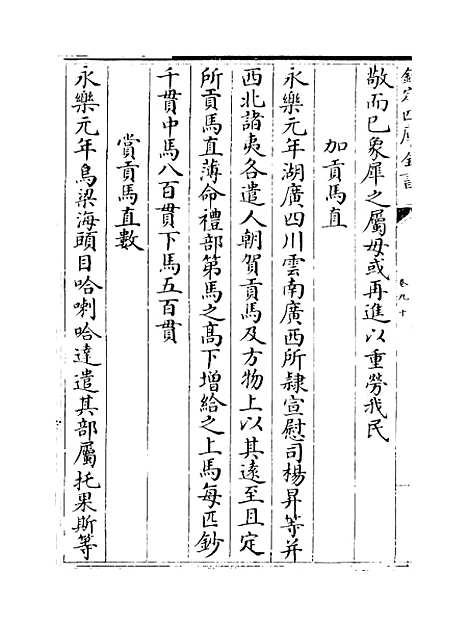 欽定四庫全書
卷九十
敬而已象犀之屬毋或再進以重勞我民
加貢馬直
永樂元年湖廣四川雲南廣西所隸宣慰司楊昇等并
西北諸夷各遣人朝賀貢馬及方物上以其遠至且定
所貢馬直薄命禮部第馬之高下增給之上馬每匹鈔
千貫中馬八百貫下馬五百貫
賞貢馬直數
永樂元年烏梁海頭目哈喇哈達遣其部屬托果斯等